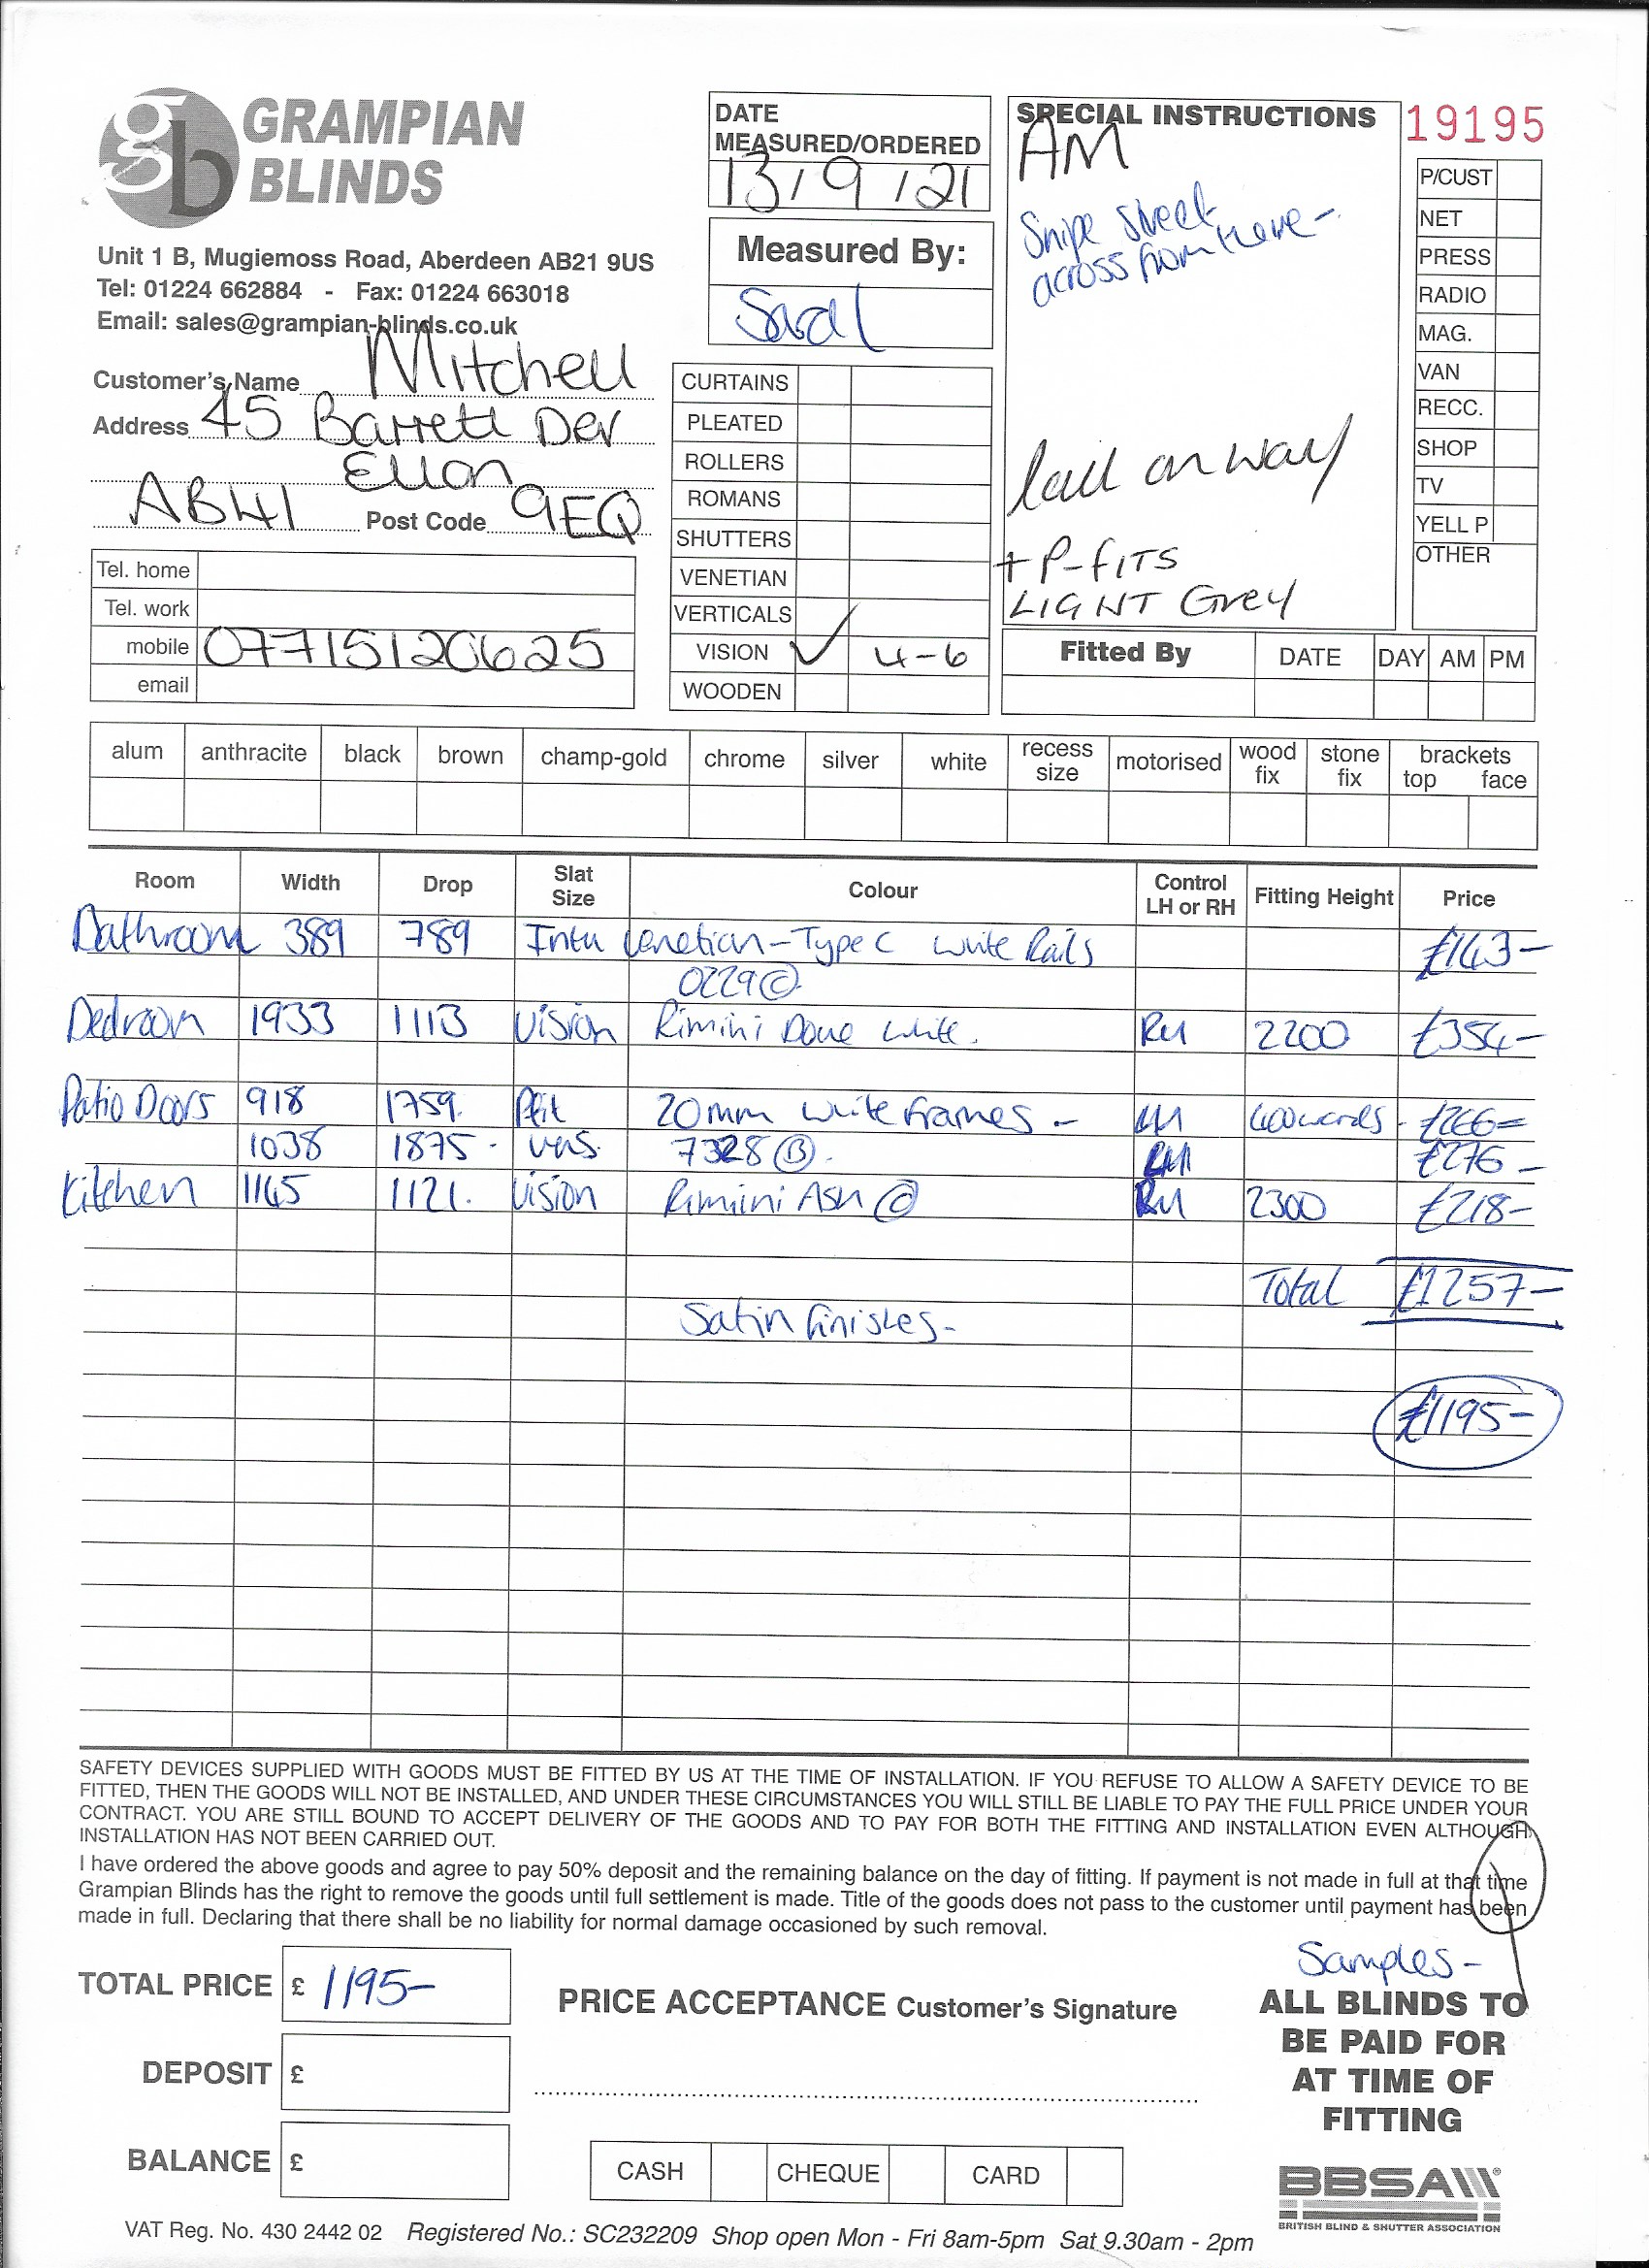 GRAMPIAN
BLINDS
Unit 1 B, Mugiemoss Road, Aberdeen AB21 9US
Tel: 01224 662884 - Fax: 01224 663018
Email: sales@grampian-blinds.co.uk
Customer's Name Mitchell
Address 45 Barrett Dev
Ellon
AB41 Post Code 9EQ
Tel. home
Tel. work
mobile 07715120625
email
DATE
MEASURED/ORDERED
13/9/21
Measured By:
CURTAINS
PLEATED
ROLLERS
ROMANS
SHUTTERS
VENETIAN
VERTICALS
VISION ✓ 4-6
WOODEN
SPECIAL INSTRUCTIONS
AM
Snipe Street
across from here-
Call on way
+ P-fITS
LIGHT Grey
19195
P/CUST
NET
PRESS
RADIO
MAG.
VAN
RECC.
SHOP
TV
YELL P
OTHER
Fitted By DATE DAY AM PM
alum anthracite black brown champ-gold chrome silver white recess size motorised wood fix stone fix brackets top face
Room Width Drop Slat Size Colour Control LH or RH Fitting Height Price
Bathroom 389 789 Intu Venetian-Type C White Rails £143-
0229©
Bedroom 1933 1113 Vision Rimini Dove White. RH 2200 £354-
Patio Doors 918 1759. Pfit 20mm White frames - LH £266=
1038 1875 - 7328 Ⓑ. £276-
Kitchen 1145 1121. Vision Rimini Ash © RH 2300 £218-
Total £1257-
Satin finishes-
£1195-
SAFETY DEVICES SUPPLIED WITH GOODS MUST BE FITTED BY US AT THE TIME OF INSTALLATION. IF YOU REFUSE TO ALLOW A SAFETY DEVICE TO BE
FITTED, THEN THE GOODS WILL NOT BE INSTALLED, AND UNDER THESE CIRCUMSTANCES YOU WILL STILL BE LIABLE TO PAY THE FULL PRICE UNDER YOUR
CONTRACT. YOU ARE STILL BOUND TO ACCEPT DELIVERY OF THE GOODS AND TO PAY FOR BOTH THE FITTING AND INSTALLATION EVEN ALTHOUGH
INSTALLATION HAS NOT BEEN CARRIED OUT.
I have ordered the above goods and agree to pay 50% deposit and the remaining balance on the day of fitting. If payment is not made in full at that time
Grampian Blinds has the right to remove the goods until full settlement is made. Title of the goods does not pass to the customer until payment has been
made in full. Declaring that there shall be no liability for normal damage occasioned by such removal.
TOTAL PRICE £ 1195-
DEPOSIT £
BALANCE £
PRICE ACCEPTANCE Customer's Signature
CASH CHEQUE CARD
Samples-
ALL BLINDS TO
BE PAID FOR
AT TIME OF
FITTING
BBSA
BRITISH BLIND & SHUTTER ASSOCIATION
VAT Reg. No. 430 2442 02 Registered No.: SC232209 Shop open Mon - Fri 8am-5pm Sat 9.30am - 2pm